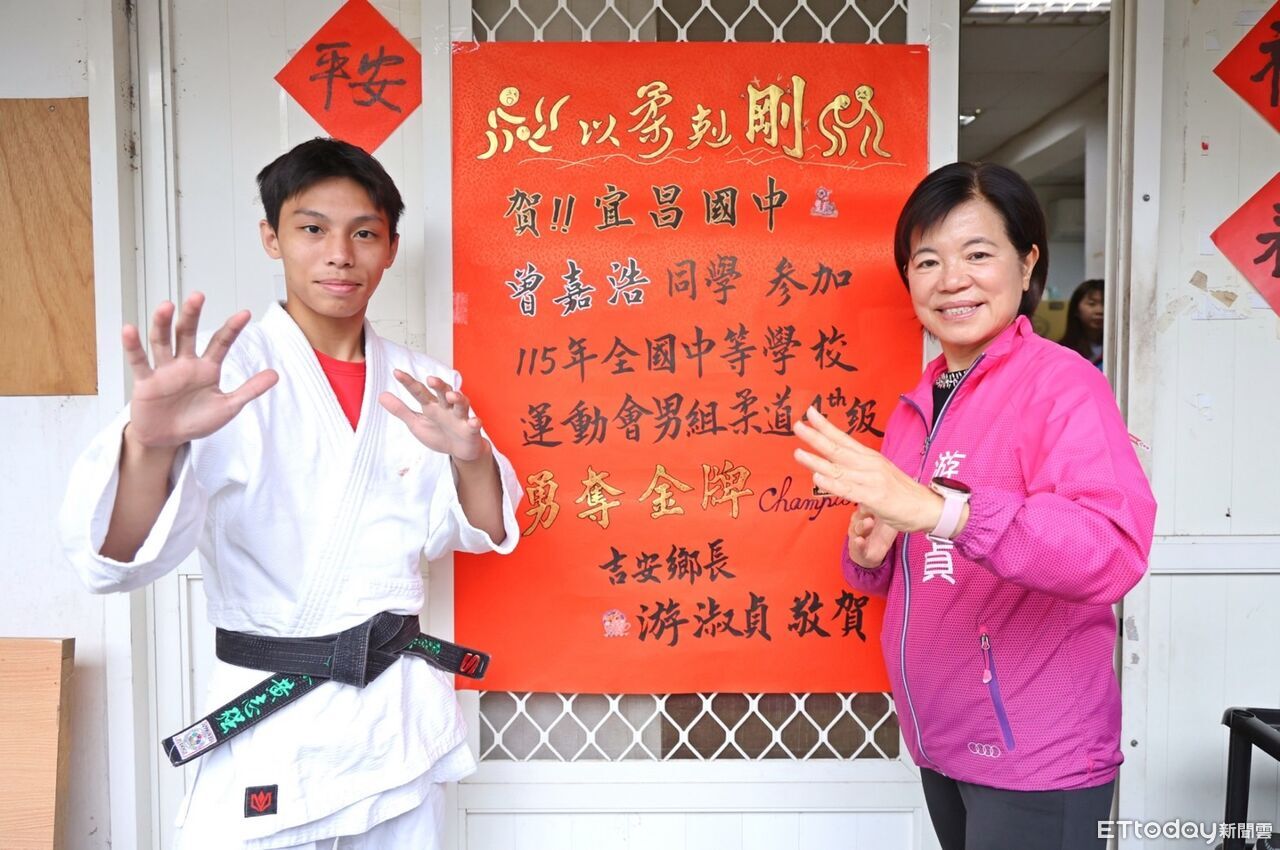 平安
以柔剋剛
賀!! 宜昌國中
曾嘉浩 同學 參加
115年全國中等學校
運動會男組柔道 級
勇奪金牌
吉安鄉長
游淑貞 敬賀
游 貞
ETtoday新聞雲